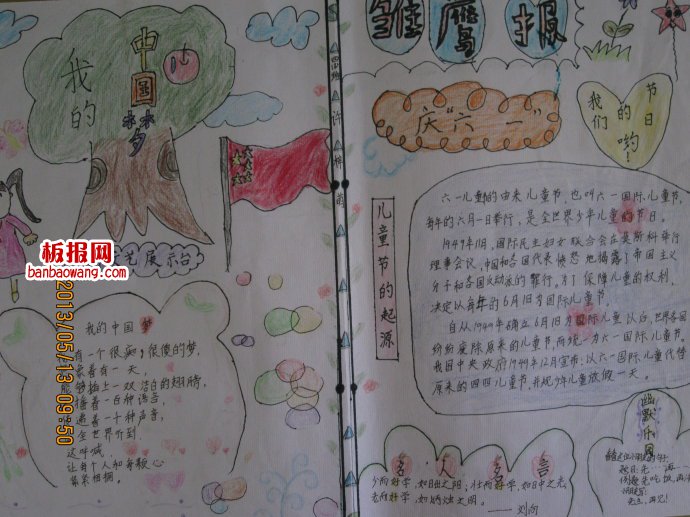 我的
中国
梦
板报网
banbaowang.com
展示台
2013/05/13 09:50
我的中国梦
有一个很痴、很傻的梦,
有一天,
插上一双洁白的翅膀,
百种语言,
十种声音,
全世界听到
这呼喊,
让每个人和每颗心
紧紧相拥。
四
许
雏鹰报
庆“六一”
我们的节日哟!
儿童节的起源
六一儿童的由来儿童节,也叫六一国际儿童节,
每年的六月一日举行,是全世界少年儿童的节日。
1949年11月,国际民主妇女联合会在莫斯科举行
理事会议,中国和各国代表愤怒地揭露了帝国主义
分子和各国反动派的罪行。为了保障儿童的权利,
决定以每年的6月1日为国际儿童节。
自从1949年确立6月1日为国际儿童以后,世界各国
纷纷废除原来的儿童节而统一为六一国际儿童节。
我国中央政府1949年12月宣布:以六一国际儿童代替
原来的四四儿童节,并规少年儿童放假一天。
名人名言
少而好学,如日出之阳;壮而好学,如日中之光;
老而好学,如炳烛之明。
——刘向
幽默乐园